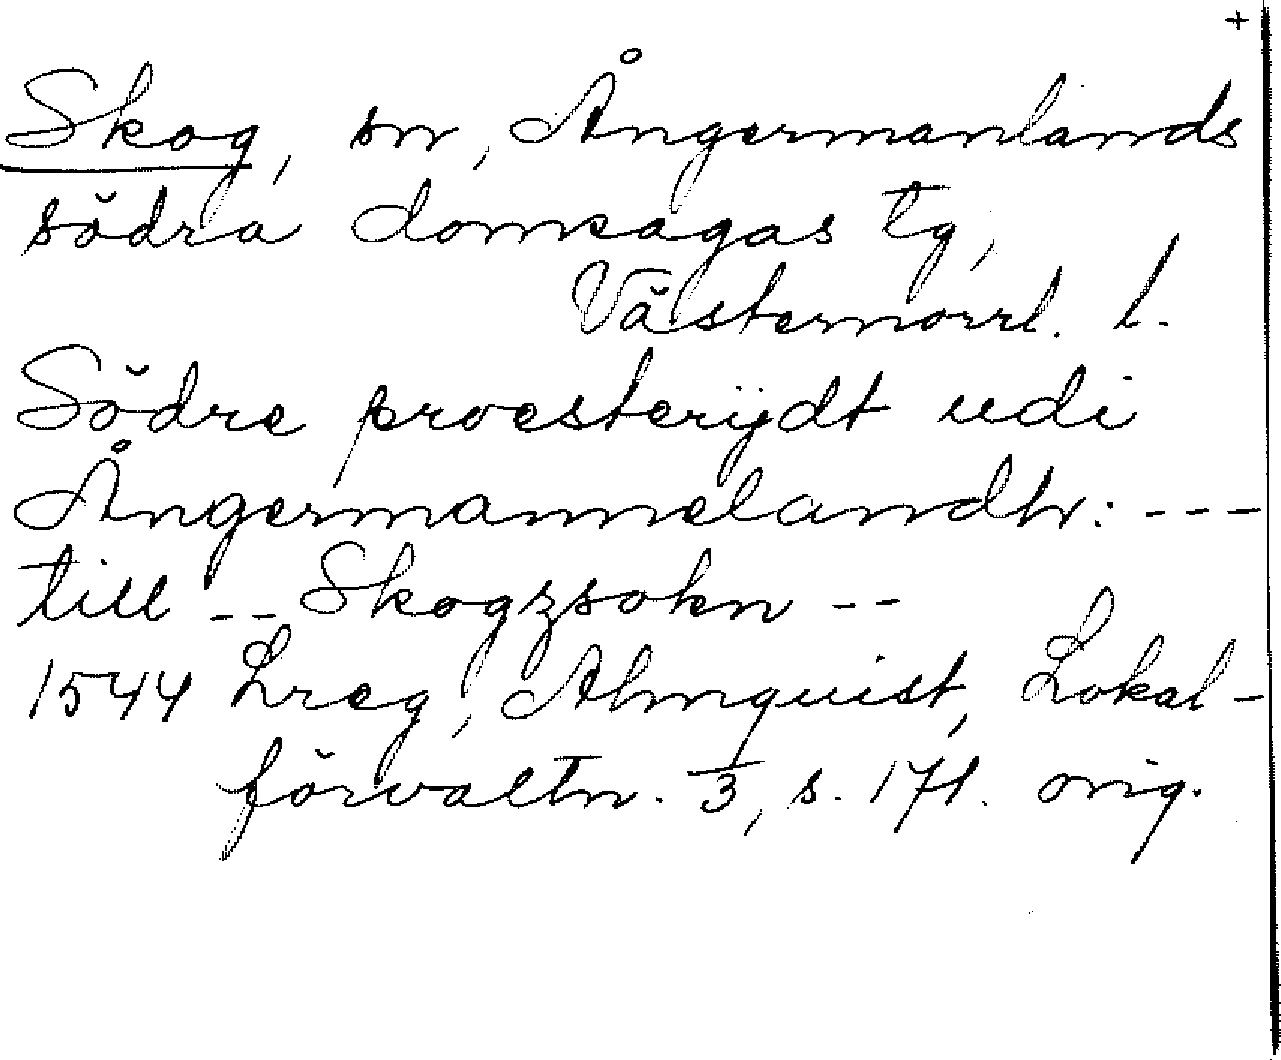 +
Skog, sn, Ångermanlands
södra domsagas tg,
Västernorrl. l.
Södre proesterijdt udi
Ångermannelandh: ---
till -- Skogzsokn --
1544 Lreg, Almquist, Lokal-
förvaltn. 3, s. 171. orig.